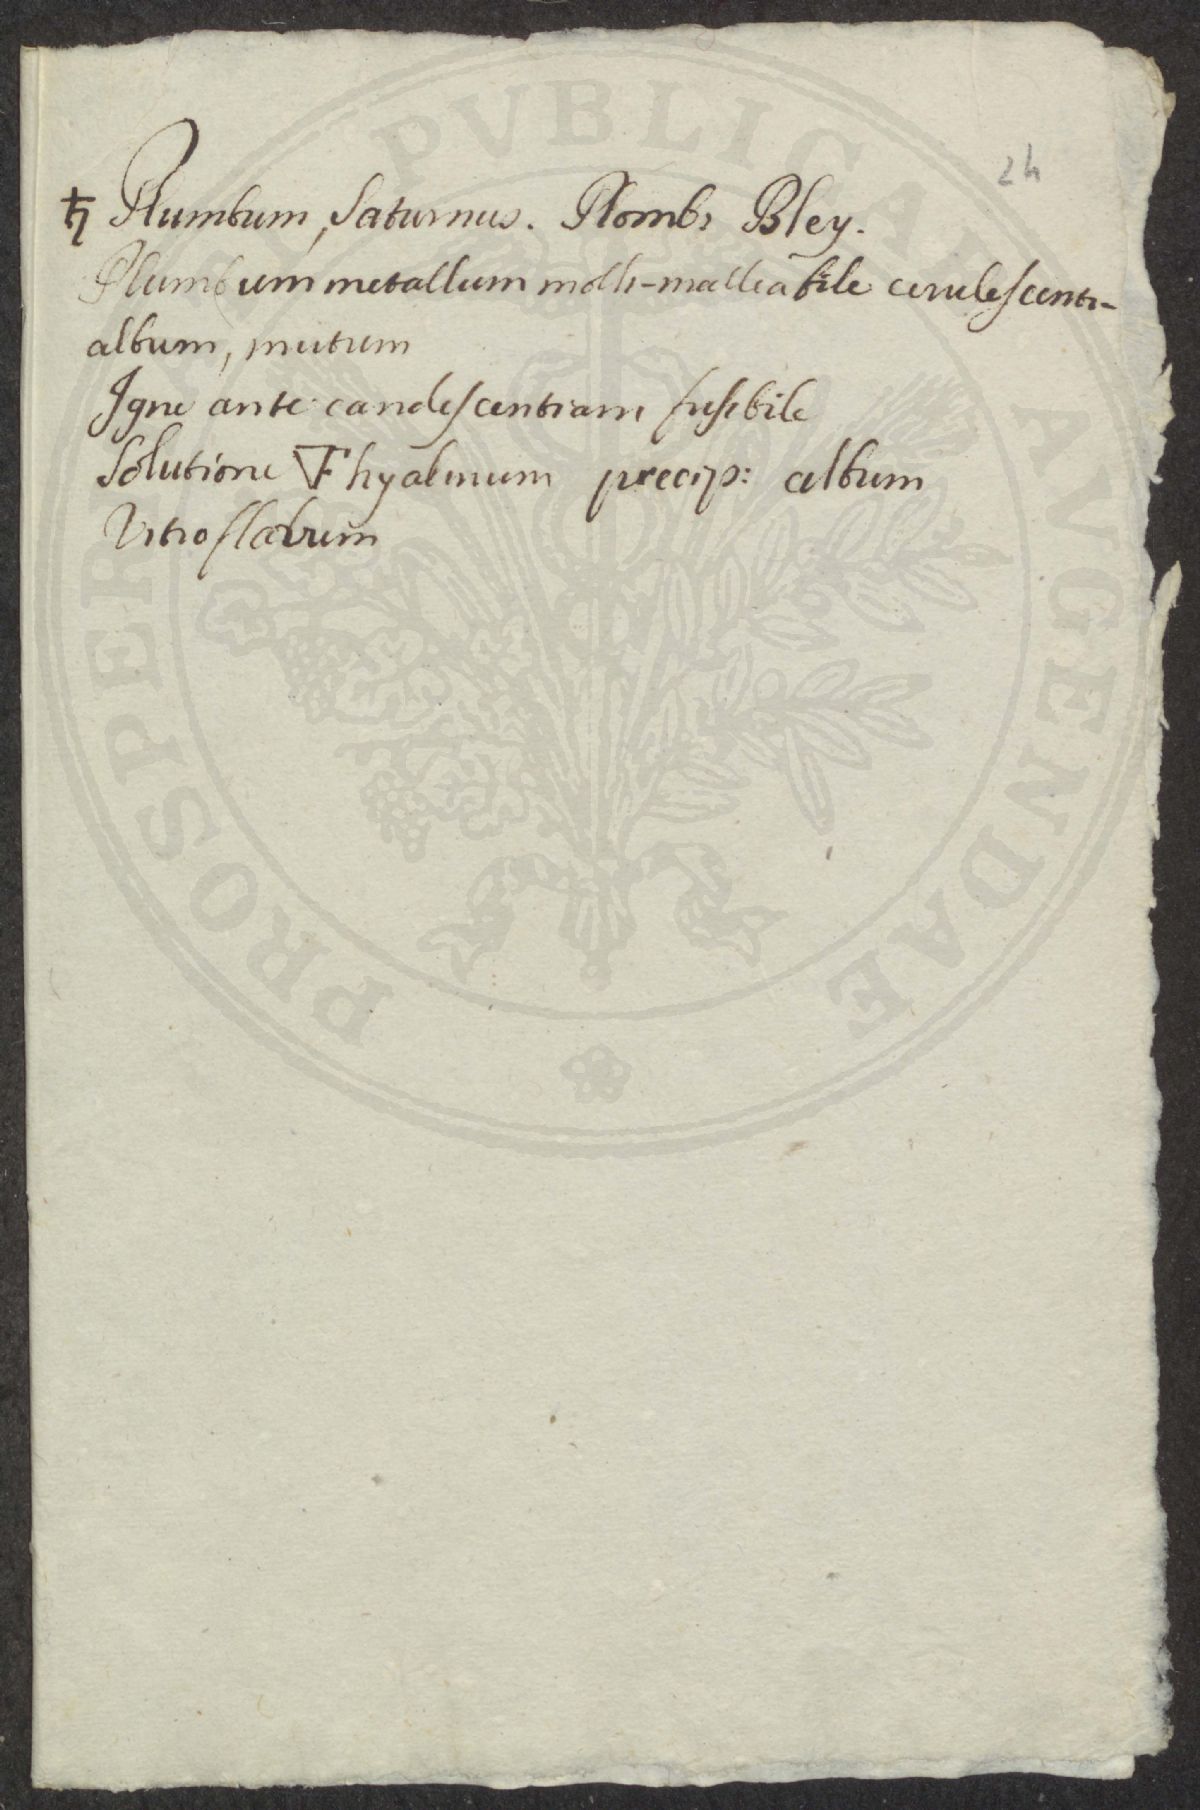 24
♄ Plumbum, Saturnus. Plomb, Bley.
Plumbum metallum molle-malleabile cerulescenti-
album, mutum
Igne ante candescentiam fusibile
Solutione 🜅 hyalinum precip: album
Vitro flavum
PROSPERITATI PVBLICAE AVGENDAE